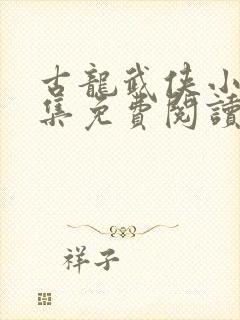 古龍武俠小
集免費閱讀
祥子